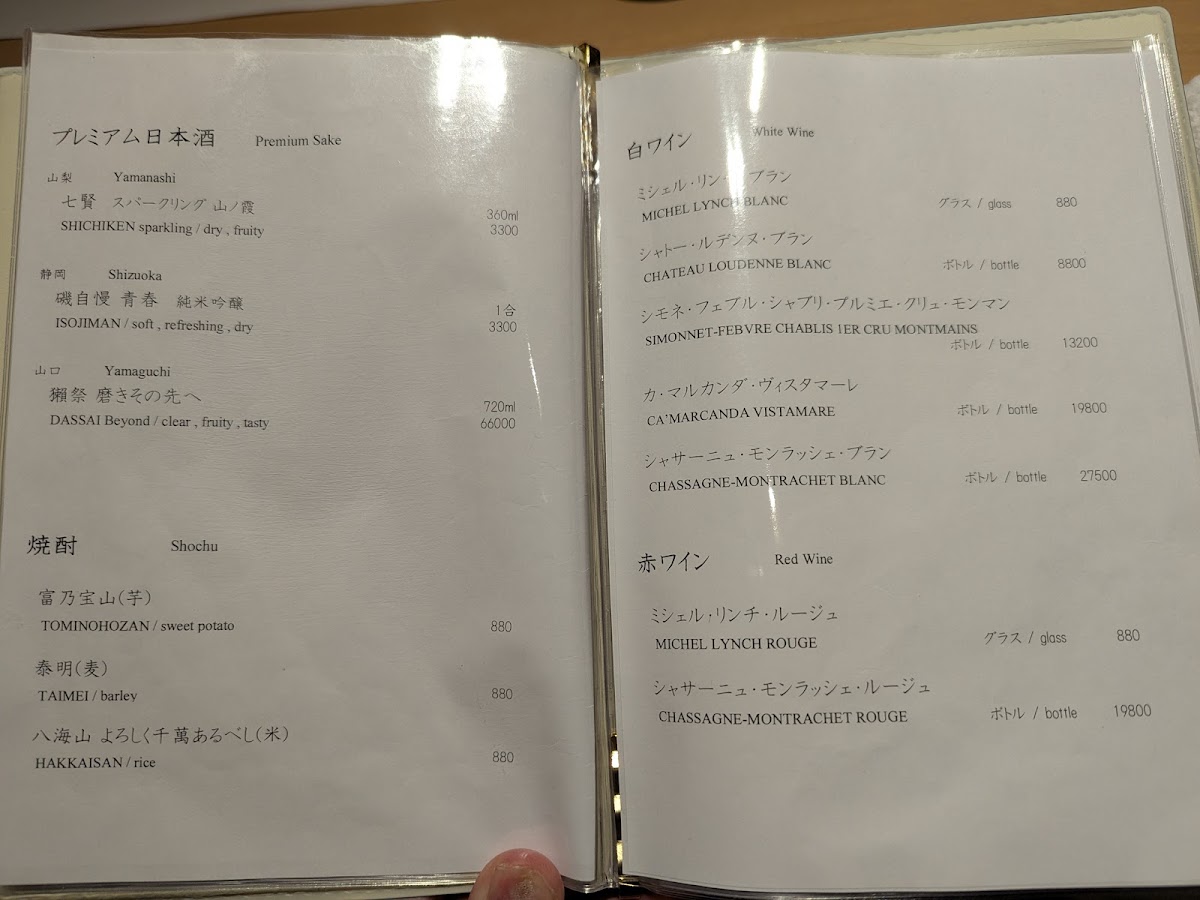 プレミアム日本酒 Premium Sake
山梨 Yamanashi
七賢 スパークリング 山ノ霞 360ml
SHICHIKEN sparkling / dry , fruity 3300
静岡 Shizuoka
磯自慢 青春 純米吟醸 1合
ISOJIMAN / soft , refreshing , dry 3300
山口 Yamaguchi
獺祭 磨きその先へ 720ml
DASSAI Beyond / clear , fruity , tasty 66000
焼酎 Shochu
富乃宝山(芋)
TOMINOHOZAN / sweet potato 880
泰明(麦)
TAIMEI / barley 880
八海山 よろしく千萬あるべし(米)
HAKKAISAN / rice 880
白ワイン White Wine
ミシェル・リンチ・ブラン
MICHEL LYNCH BLANC グラス / glass 880
シャトー・ルデンヌ・ブラン
CHATEAU LOUDENNE BLANC ボトル / bottle 8800
シモネ・フェブル・シャブリ・プルミエ・クリュ・モンマン
SIMONNET-FEBVRE CHABLIS 1ER CRU MONTMAINS
ボトル / bottle 13200
カ・マルカンダ・ヴィスタマーレ
CA'MARCANDA VISTAMARE ボトル / bottle 19800
シャサーニュ・モンラッシェ・ブラン
CHASSAGNE-MONTRACHET BLANC ボトル / bottle 27500
赤ワイン Red Wine
ミシェル・リンチ・ルージュ
MICHEL LYNCH ROUGE グラス / glass 880
シャサーニュ・モンラッシェ・ルージュ
CHASSAGNE-MONTRACHET ROUGE ボトル / bottle 19800